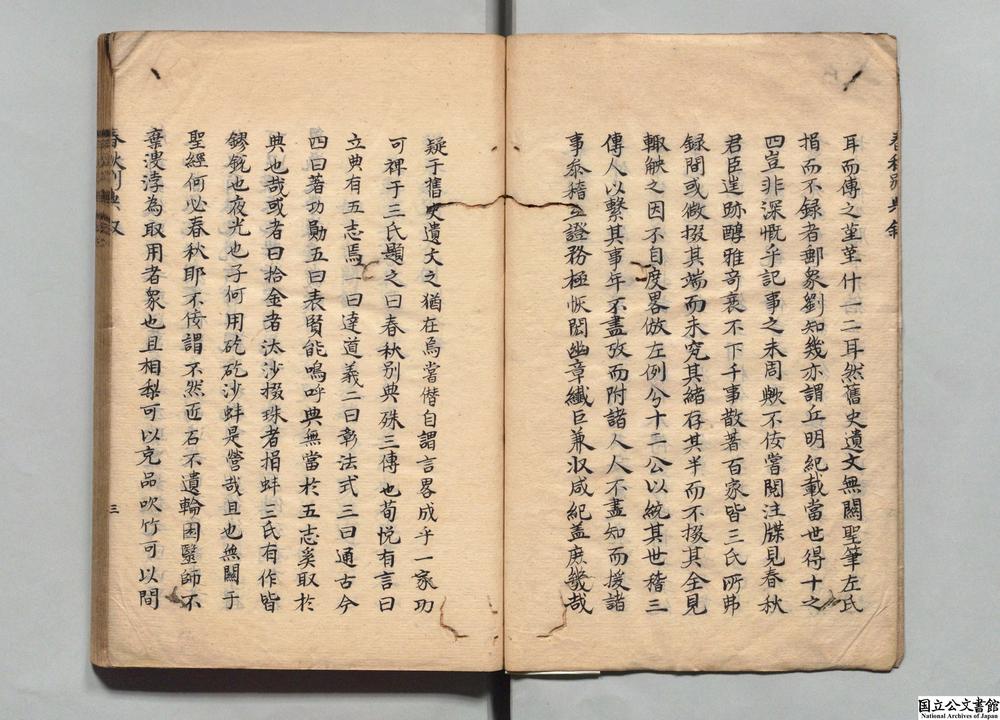 春秋別典叙
耳而傳之堇堇什一二耳然舊史遺文無關聖筆左氏
捐而不録者鄙衆劉知幾亦謂丘明紀載當世得十之
四豈非深慨乎記事之未周歟不佞嘗閲注牒見春秋
君臣逹跡醇雅奇衺不下千事散著百家皆三氏所弗
録間或微掇其端而未究其緒存其半而不掇其全見
輙觖之因不自度畧倣左例分十二公以統其世稽三
傳人以繫其事年不盡攷而附諸人人不盡知而援諸
事叅稽互證務極恢閎幽章纖巨兼収咸紀盖庶幾哉
疑于舊史遺文之猶在焉嘗僭自謂言畧成乎一家功
可裨于三氏題之曰春秋别典殊三傳也荀悦有言曰
立典有五志焉一曰達道義二曰彰法式三曰通古今
四曰著功勛五曰表賢能嗚呼典無當於五志奚取於
典也哉或者曰拾金者汰沙掇珠者捐蚌三氏有作皆
鏐銑也夜光也子何用矻矻沙蚌是營哉且也無關于
聖經何必春秋耶不佞謂不然匠石不遺輪囷醫師不
棄溲浡為取用者衆也且相梨可以充品吹竹可以間
春秋別典叙
三
国立公文書館
National Archives of Japan